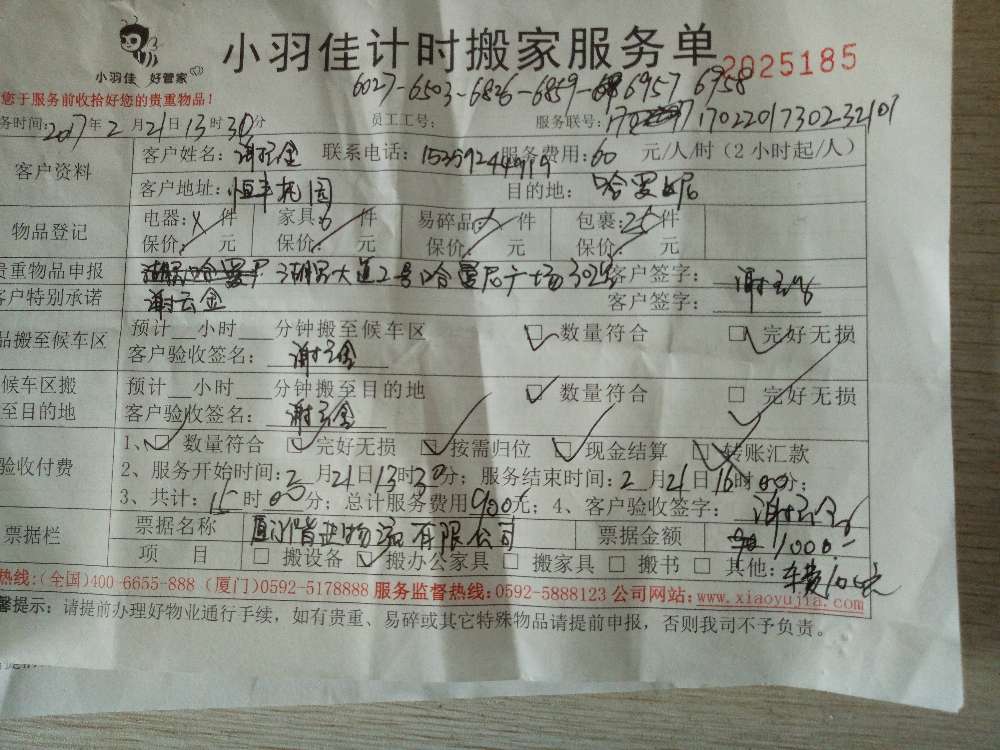 小羽佳计时搬家服务单
小羽佳 好管家
2025185
6027-6503-6826-6859- 6957 6958
您于服务前收拾好您的贵重物品!
务时间:2017年2月21日13时30分 员工工号: 服务联号: 1702201730232101
客户资料 客户姓名:谢云金 联系电话: 服务费用:60 元/人/时(2小时起/人)
客户地址:恒丰花园 目的地:
物品登记 电器: 件 家具:6件 易碎品: 件 包裹:25件
保价: 元 保价: 元 保价: 元 保价: 元
贵重物品申报 大道2号 广场 客户签字:谢云金
客户特别承诺 谢云金 客户签字:
品搬至候车区 预计__小时__分钟搬至候车区 数量符合 完好无损
客户验收签名:谢云金
候车区搬至目的地 预计__小时__分钟搬至目的地 数量符合 完好无损
客户验收签名:谢云金
验收付费 1、 数量符合 完好无损 按需归位 现金结算 转账汇款
2、服务开始时间:2月21日13时30分;服务结束时间:2月21日16时00分;
3、共计:15时00分;总计服务费用900元;4、客户验收签字:谢云金
票据栏 票据名称 物流有限公司 票据金额 1000.-
项 目 搬设备 搬办公家具 搬家具 搬书 其他:车费100元
热线:(全国)400-6655-888 (厦门)0592-5178888 服务监督热线:0592-5888123 公司网站:www.xiaoyujia.com
馨提示:请提前办理好物业通行手续,如有贵重、易碎或其它特殊物品请提前申报,否则我司不予负责。